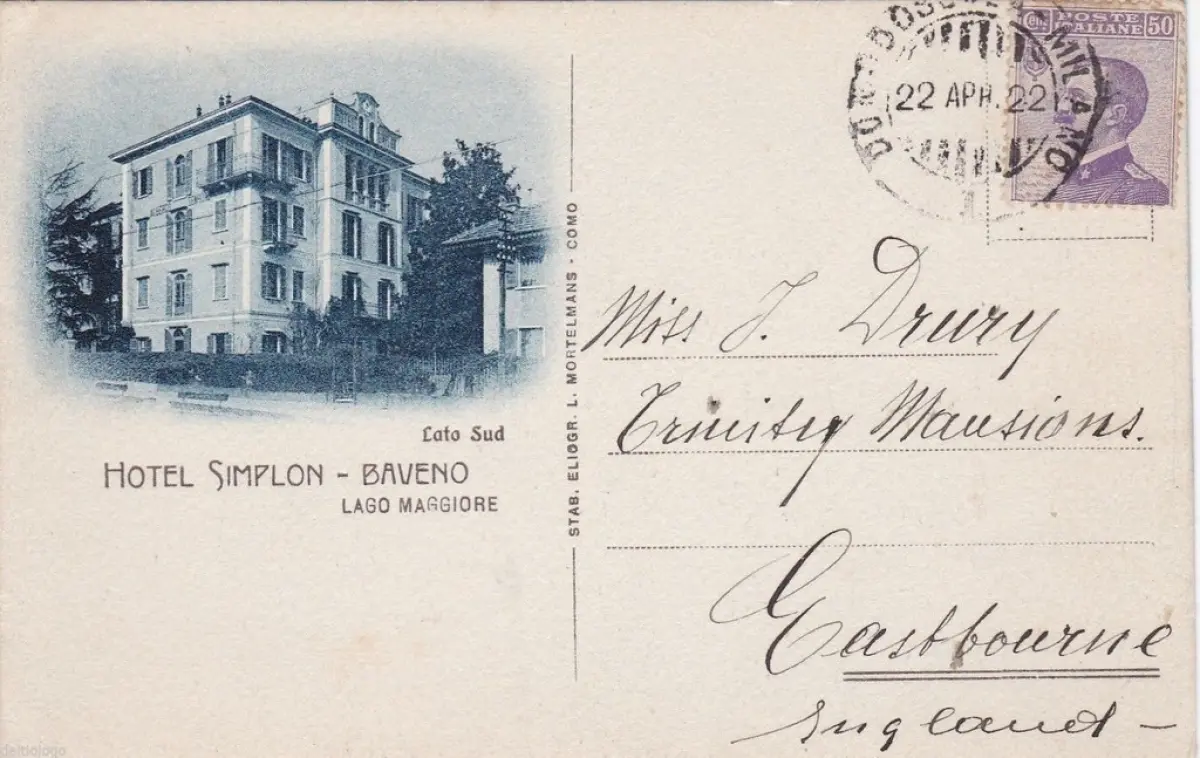 Cent. POSTE ITALIANE 50
DOMODOSSOLA - MILANO
22 APR. 22
Lato Sud
HOTEL SIMPLON - BAVENO
LAGO MAGGIORE
STAB. ELIOGR. L. MORTELMANS - COMO
Miss J. Drury
Trinity Mansions.
Eastbourne
England -
deltiologo